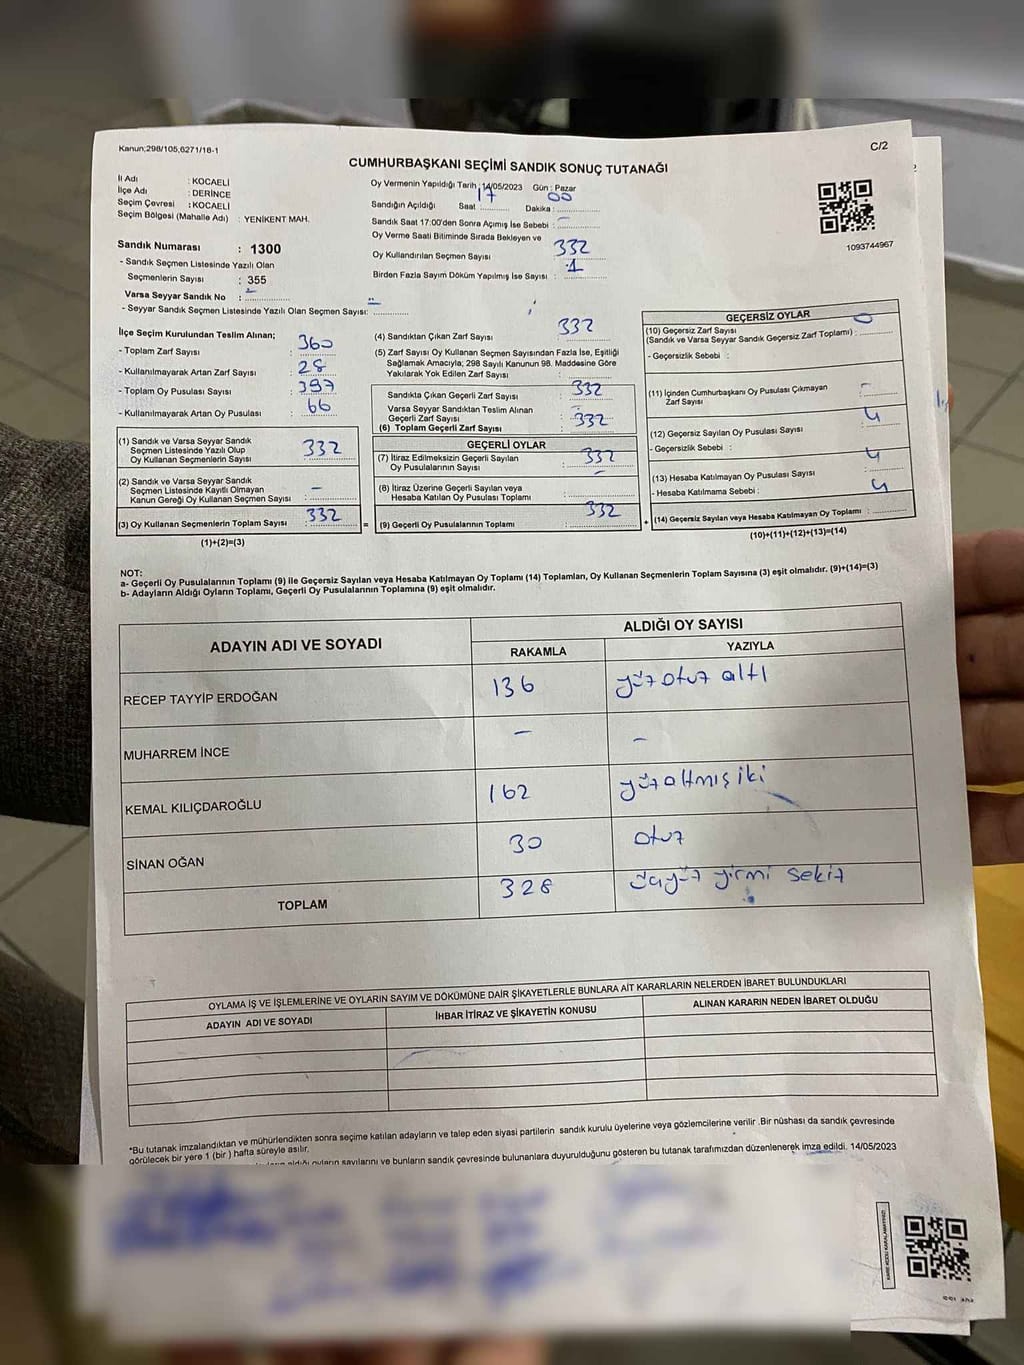 Kanun;298/105,6271/18-1
C/2
CUMHURBAŞKANI SEÇİMİ SANDIK SONUÇ TUTANAĞI
İl Adı : KOCAELİ
İlçe Adı : DERİNCE
Seçim Çevresi : KOCAELİ
Seçim Bölgesi (Mahalle Adı) : YENİKENT MAH.
Sandık Numarası : 1300
- Sandık Seçmen Listesinde Yazılı Olan
Seçmenlerin Sayısı : 355
Varsa Seyyar Sandık No : -
- Seyyar Sandık Seçmen Listesinde Yazılı Olan Seçmen Sayısı: -
Oy Vermenin Yapıldığı Tarih : 14/05/2023 Gün : Pazar
Sandığın Açıldığı Saat 17 Dakika : 00
Sandık Saat 17:00'den Sonra Açımış İse Sebebi : -
Oy Verme Saati Bitiminde Sırada Bekleyen ve
Oy Kullandırılan Seçmen Sayısı : 332
Birden Fazla Sayım Döküm Yapılmış İse Sayısı : 1
1093744967
İlçe Seçim Kurulundan Teslim Alınan;
- Toplam Zarf Sayısı : 360
- Kullanılmayarak Artan Zarf Sayısı : 28
- Toplam Oy Pusulası Sayısı : 397
- Kullanılmayarak Artan Oy Pusulası : 66
(1) Sandık ve Varsa Seyyar Sandık
Seçmen Listesinde Yazılı Olup
Oy Kullanan Seçmenlerin Sayısı : 332
(2) Sandık ve Varsa Seyyar Sandık
Seçmen Listesinde Kayıtlı Olmayan
Kanun Gereği Oy Kullanan Seçmen Sayısı : -
(3) Oy Kullanan Seçmenlerin Toplam Sayısı : 332
(1)+(2)=(3)
(4) Sandıktan Çıkan Zarf Sayısı : 332
(5) Zarf Sayısı Oy Kullanan Seçmen Sayısından Fazla İse, Eşitliği
Sağlamak Amacıyla; 298 Sayılı Kanunun 98. Maddesine Göre
Yakılarak Yok Edilen Zarf Sayısı :
Sandıkta Çıkan Geçerli Zarf Sayısı : 332
Varsa Seyyar Sandıktan Teslim Alınan
Geçerli Zarf Sayısı : -
(6) Toplam Geçerli Zarf Sayısı : 332
GEÇERLİ OYLAR
(7) İtiraz Edilmeksizin Geçerli Sayılan
Oy Pusulalarının Sayısı : 332
(8) İtiraz Üzerine Geçerli Sayılan veya
Hesaba Katılan Oy Pusulası Toplamı : -
(9) Geçerli Oy Pusulalarının Toplamı : 332
GEÇERSİZ OYLAR
(10) Geçersiz Zarf Sayısı
(Sandık ve Varsa Seyyar Sandık Geçersiz Zarf Toplamı) : 0
- Geçersizlik Sebebi :
(11) İçinden Cumhurbaşkanı Oy Pusulası Çıkmayan
Zarf Sayısı : -
(12) Geçersiz Sayılan Oy Pusulası Sayısı : 4
- Geçersizlik Sebebi :
(13) Hesaba Katılmayan Oy Pusulası Sayısı : 4
- Hesaba Katılmama Sebebi :
(14) Geçersiz Sayılan veya Hesaba Katılmayan Oy Toplamı : 4
(10)+(11)+(12)+(13)=(14)
NOT:
a- Geçerli Oy Pusulalarının Toplamı (9) ile Geçersiz Sayılan veya Hesaba Katılmayan Oy Toplamı (14) Toplamları, Oy Kullanan Seçmenlerin Toplam Sayısına (3) eşit olmalıdır. (9)+(14)=(3)
b- Adayların Aldığı Oyların Toplamı, Geçerli Oy Pusulalarının Toplamına (9) eşit olmalıdır.
ADAYIN ADI VE SOYADI ALDIĞI OY SAYISI
RAKAMLA YAZIYLA
RECEP TAYYİP ERDOĞAN 136 yüz otuz altı
MUHARREM İNCE - -
KEMAL KILIÇDAROĞLU 162 yüz altmış iki
SİNAN OĞAN 30 otuz
TOPLAM 328 üçyüz yirmi sekiz
OYLAMA İŞ VE İŞLEMLERİNE VE OYLARIN SAYIM VE DÖKÜMÜNE DAİR ŞİKAYETLERLE BUNLARA AİT KARARLARIN NELERDEN İBARET BULUNDUKLARI
ADAYIN ADI VE SOYADI İHBAR İTİRAZ VE ŞİKAYETİN KONUSU ALINAN KARARIN NEDEN İBARET OLDUĞU
*Bu tutanak imzalandıktan ve mühürlendikten sonra seçime katılan adayların ve talep eden siyasi partilerin sandık kurulu üyelerine veya gözlemcilerine verilir .Bir nüshası da sandık çevresinde
görülecek bir yere 1 (bir ) hafta süreyle asılır.
aldığı oyların sayılarını ve bunların sandık çevresinde bulunanlara duyurulduğunu gösteren bu tutanak tarafımızdan düzenlenerek imza edildi. 14/05/2023
KARE KODU KARALAMAYINIZ!